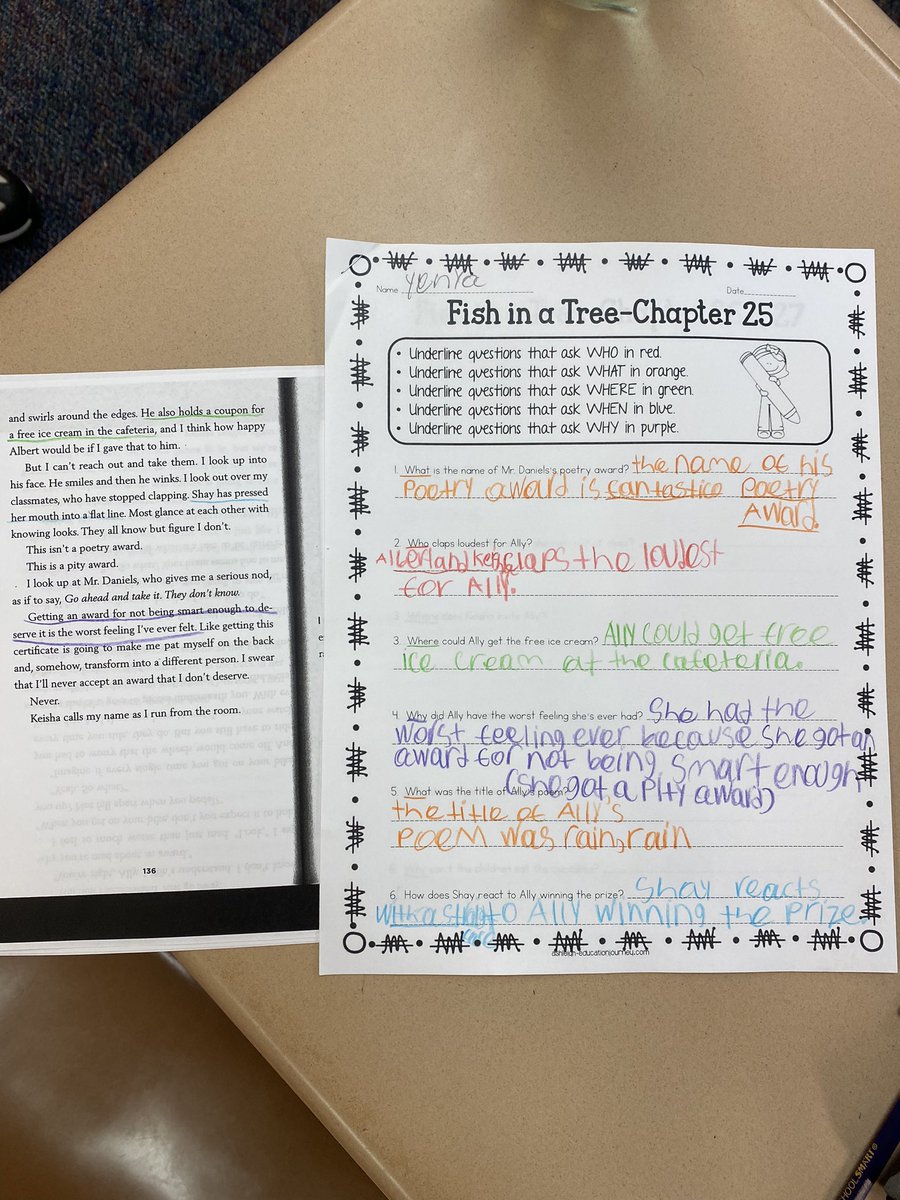 and swirls around the edges. He also holds a coupon for
a free ice cream in the cafeteria, and I think how happy
Albert would be if I gave that to him.
But I can't reach out and take them. I look up into
his face. He smiles and then he winks. I look out over my
classmates, who have stopped clapping. Shay has pressed
her mouth into a flat line. Most glance at each other with
knowing looks. They all know but figure I don't.
This isn't a poetry award.
This is a pity award.
I look up at Mr. Daniels, who gives me a serious nod,
as if to say, Go ahead and take it. They don't know.
Getting an award for not being smart enough to de-
serve it is the worst feeling I've ever felt. Like getting this
certificate is going to make me pat myself on the back
and, somehow, transform into a different person. I swear
that I'll never accept an award that I don't deserve.
Never.
Keisha calls my name as I run from the room.
136
Name
Date
Fish in a Tree-Chapter 25
• Underline questions that ask WHO in red.
• Underline questions that ask WHAT in orange.
• Underline questions that ask WHERE in green.
• Underline questions that ask WHEN in blue.
• Underline questions that ask WHY in purple.
1. What is the name of Mr. Daniels's poetry award? the name of his
Poetry award is fantastice poetry
AWard.
2. Who claps loudest for Ally?
claps the loudest
for Ally.
3. Where could Ally get the free ice cream? Ally could get free
ice cream at the cafeteria.
4. Why did Ally have the worst feeling she's ever had? She had the
worst feeling ever because she got an
award for not being smart enough
(she got a pity award)
5. What was the title of Ally's poem?
the title of Ally's
Poem was rain, rain
6. How does Shay react to Ally winning the prize? Shay reacts
with a to Ally winning the prize.
ashleigh-educationjourney.com